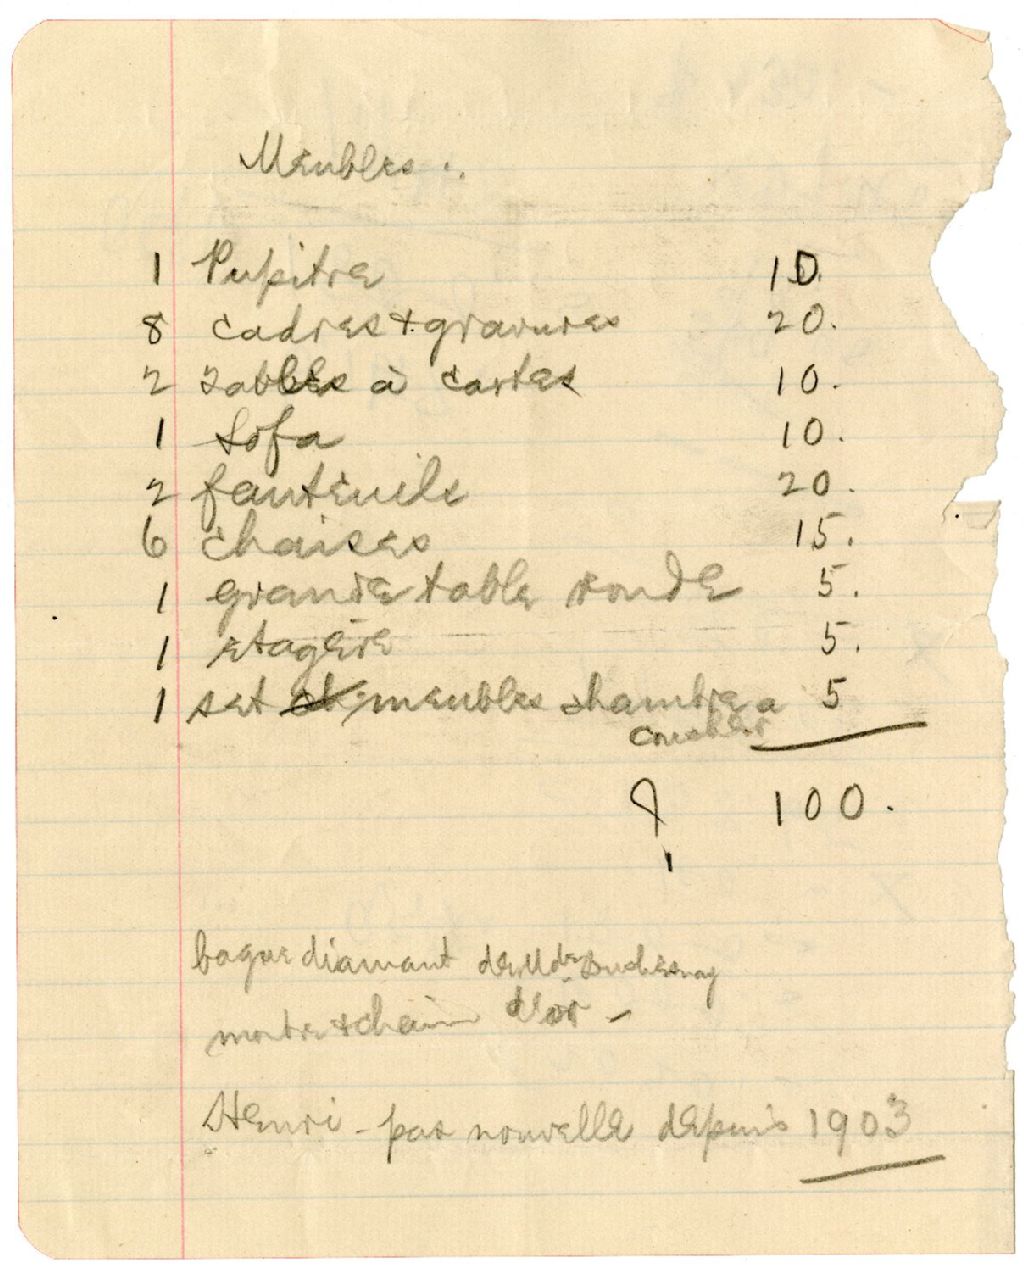 Meubles :.
1 Pupitre 10
8 cadres + gravures 20.
2 tables à cartes 10.
1 Sofa 10.
2 fauteuils 20.
6 chaises 15.
1 grande table ronde 5.
1 etagère 5.
1 set meubles chambre a 5
coucher
100.
bague diamant de Mde Duchesnay
montre + chaine d'or -
Henri - pas nouvelle depuis 1903